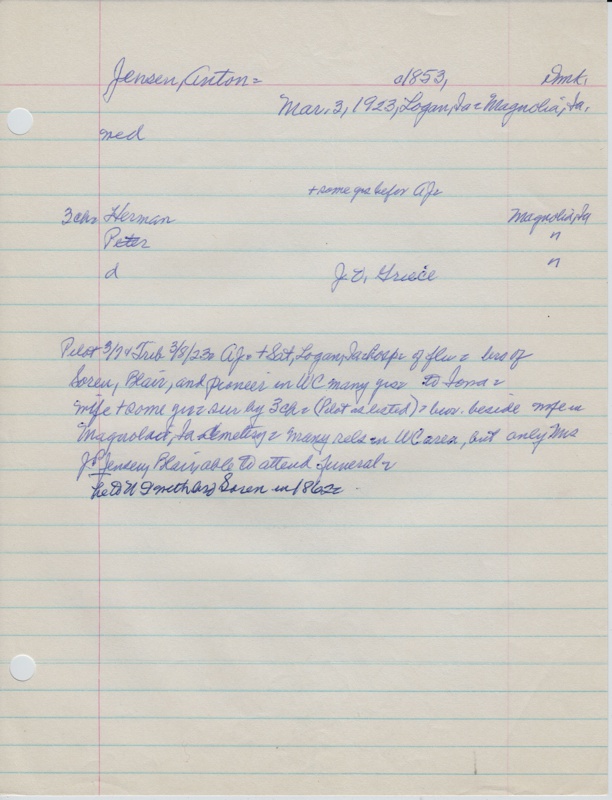 Jensen, Anton= c1853, Dmk.
Mar. 3, 1923, Logan, Ia= Magnolia, Ia.
med
+some yrs befor AJ=
3ch= Herman Magnolia, Ia
Peter "
d J.V. Griece "
Pilot 3/7 & Trib 3/8/23= AJ= +Sat, Logan, Ia hosp= of flu= bro of
Soren, Blair, and pioneer in WC many yrs= to Iowa=
wife + some yrs= sur by 3ch= (Pilot as listed)= bur. beside wife in
Magnolia, Ia cemetery= many rels in WC area, but only Mrs
J.P. Jensen, Blair, able to attend funeral=
to US with bro Soren in 1862=